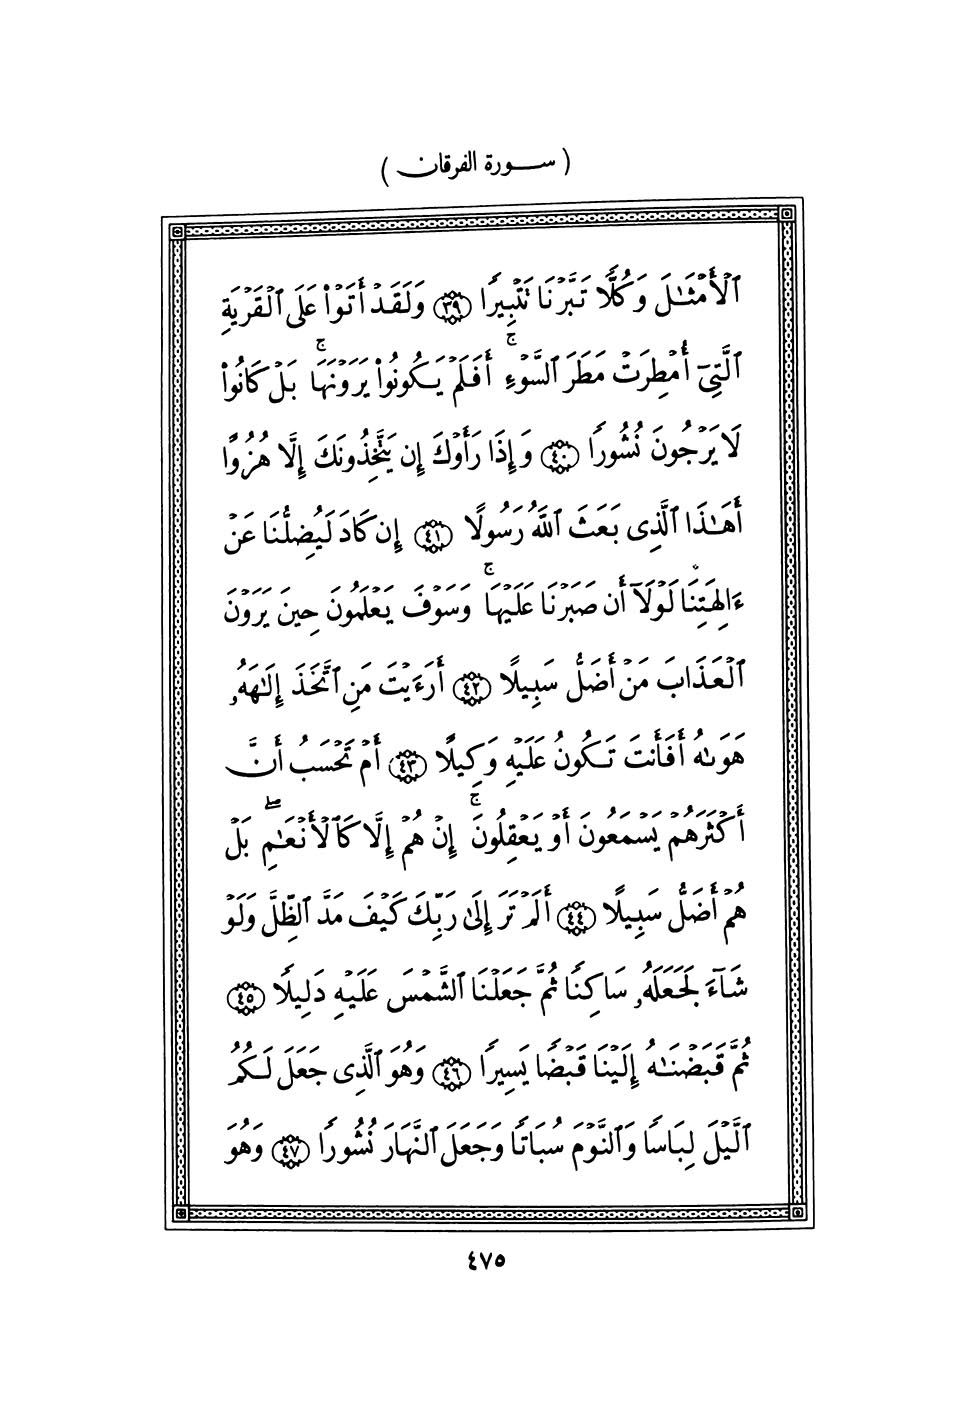 ( سورة الفرقان )
ٱلْأَمْثَـٰلَ وَكُلًّا تَبَّرْنَا تَتْبِيرًا ﴿٣٩﴾ وَلَقَدْ أَتَوْا۟ عَلَى ٱلْقَرْيَةِ
ٱلَّتِىٓ أُمْطِرَتْ مَطَرَ ٱلسَّوْءِ ۚ أَفَلَمْ يَكُونُوا۟ يَرَوْنَهَا ۚ بَلْ كَانُوا۟
لَا يَرْجُونَ نُشُورًا ﴿٤٠﴾ وَإِذَا رَأَوْكَ إِن يَتَّخِذُونَكَ إِلَّا هُزُوًا
أَهَـٰذَا ٱلَّذِى بَعَثَ ٱللَّهُ رَسُولًا ﴿٤١﴾ إِن كَادَ لَيُضِلُّنَا عَنْ
ءَالِهَتِنَا لَوْلَآ أَن صَبَرْنَا عَلَيْهَا ۚ وَسَوْفَ يَعْلَمُونَ حِينَ يَرَوْنَ
ٱلْعَذَابَ مَنْ أَضَلُّ سَبِيلًا ﴿٤٢﴾ أَرَءَيْتَ مَنِ ٱتَّخَذَ إِلَـٰهَهُۥ
هَوَىٰهُ أَفَأَنتَ تَكُونُ عَلَيْهِ وَكِيلًا ﴿٤٣﴾ أَمْ تَحْسَبُ أَنَّ
أَكْثَرَهُمْ يَسْمَعُونَ أَوْ يَعْقِلُونَ ۚ إِنْ هُمْ إِلَّا كَٱلْأَنْعَـٰمِ ۖ بَلْ
هُمْ أَضَلُّ سَبِيلًا ﴿٤٤﴾ أَلَمْ تَرَ إِلَىٰ رَبِّكَ كَيْفَ مَدَّ ٱلظِّلَّ وَلَوْ
شَآءَ لَجَعَلَهُۥ سَاكِنًا ثُمَّ جَعَلْنَا ٱلشَّمْسَ عَلَيْهِ دَلِيلًا ﴿٤٥﴾
ثُمَّ قَبَضْنَـٰهُ إِلَيْنَا قَبْضًا يَسِيرًا ﴿٤٦﴾ وَهُوَ ٱلَّذِى جَعَلَ لَكُمُ
ٱلَّيْلَ لِبَاسًا وَٱلنَّوْمَ سُبَاتًا وَجَعَلَ ٱلنَّهَارَ نُشُورًا ﴿٤٧﴾ وَهُوَ
٤٧٥